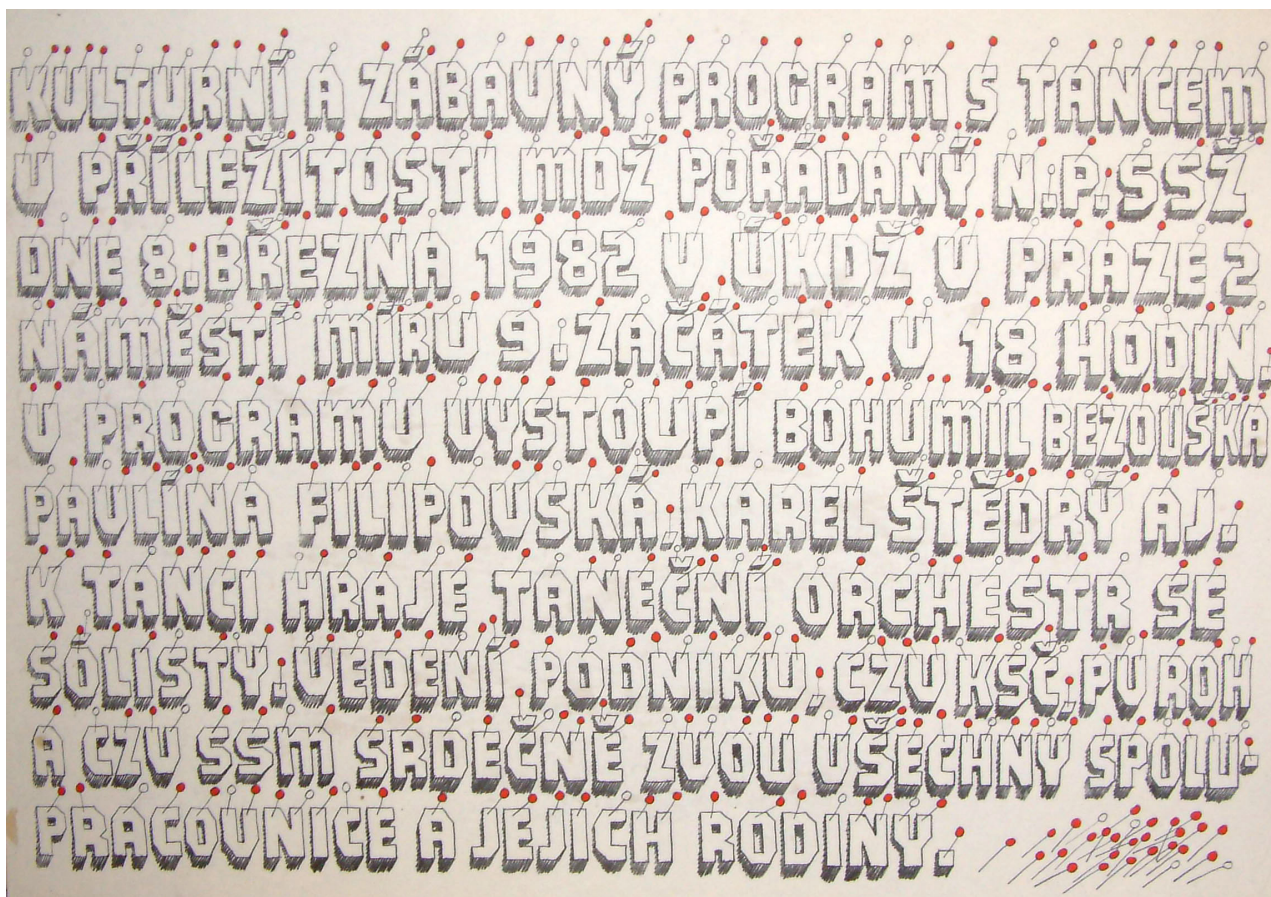 KULTURNÍ A ZÁBAVNÝ PROGRAM S TANCEM
U PŘÍLEŽITOSTI MDŽ POŘÁDANÝ N.P. SSŽ
DNE 8. BŘEZNA 1982 V ÚKDŽ V PRAZE 2
NÁMĚSTÍ MÍRU 9. ZAČÁTEK V 18 HODIN.
V PROGRAMU VYSTOUPÍ BOHUMIL BEZOUŠKA
PAVLÍNA FILIPOVSKÁ, KAREL ŠTĚDRÝ AJ.
K TANCI HRAJE TANEČNÍ ORCHESTR SE
SÓLISTY. VEDENÍ PODNIKU, CZV KSČ, PV ROH
A CZV SSM SRDEČNĚ ZVOU VŠECHNY SPOLU-
PRACOVNICE A JEJICH RODINY.